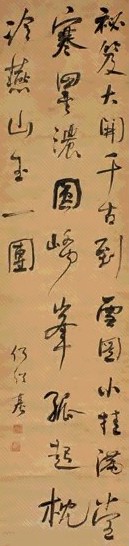 祕笈大開千古到雪圖小挂滿堂
寒墨濃圓嶠峯孤起枕
冷燕山玉一團
何紹基